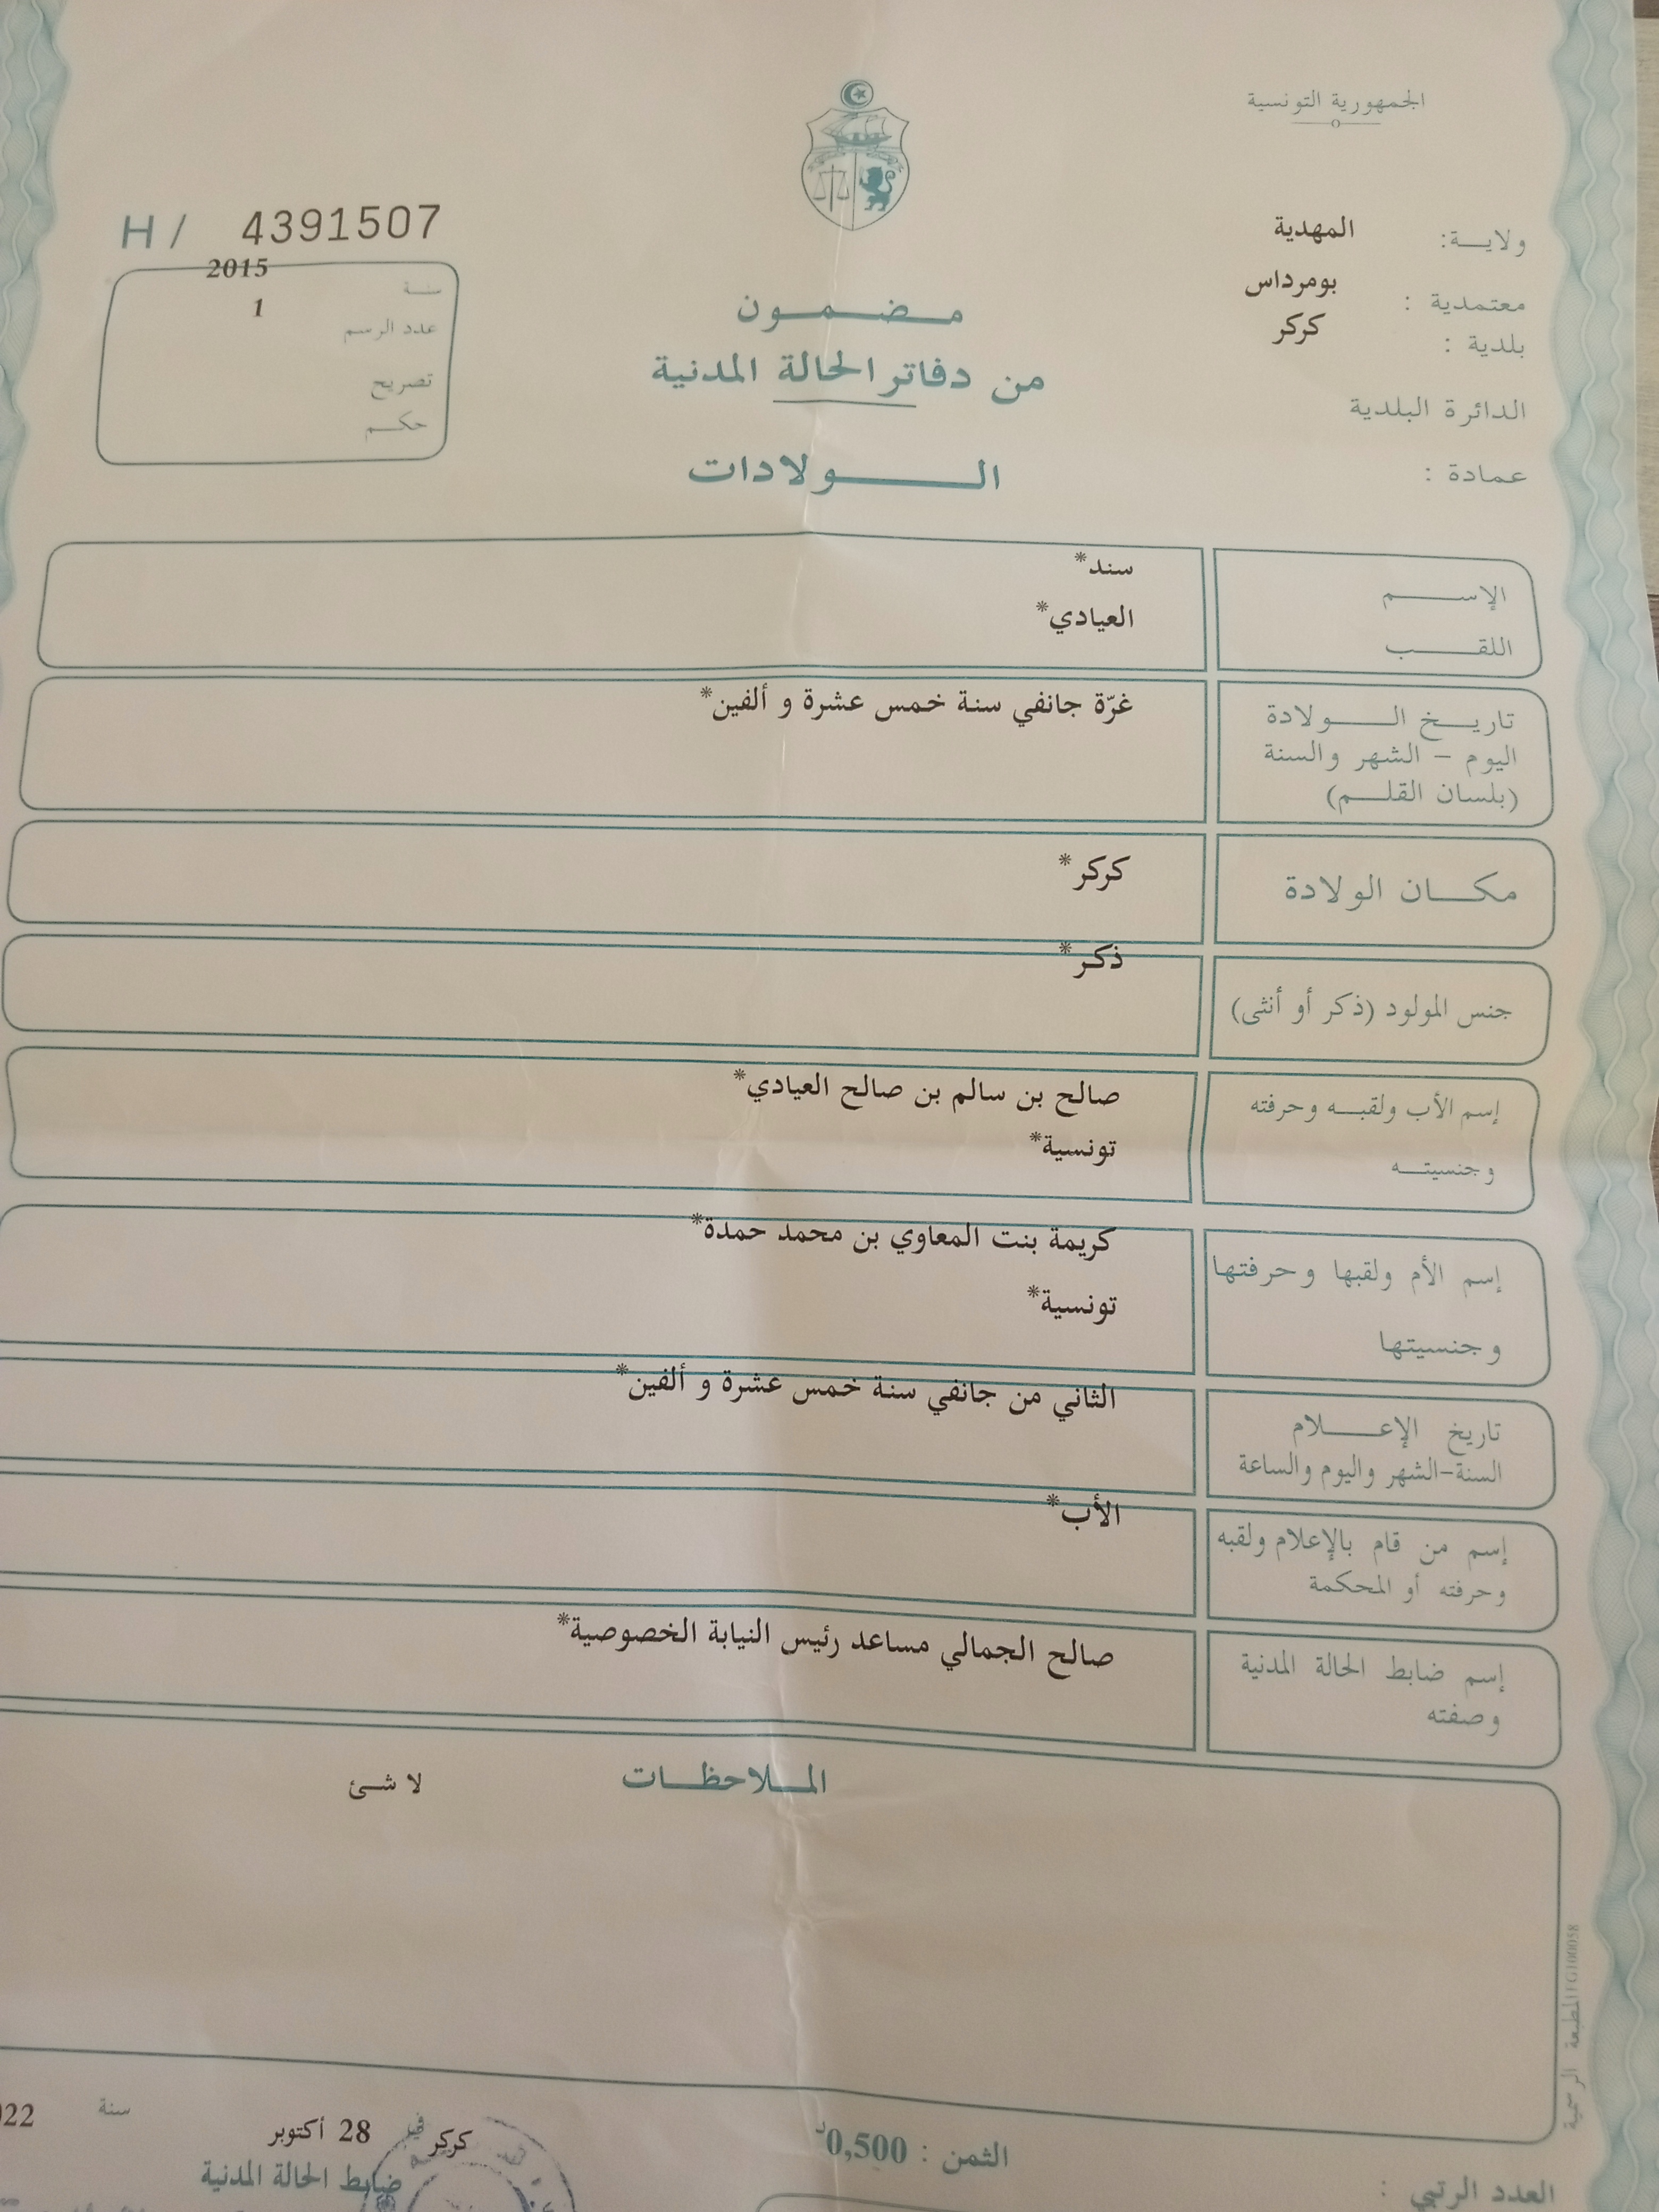 الجمهورية التونسية
ولايـــة: المهدية
معتمدية : بومرداس
بلدية : كركر
الدائرة البلدية
عمادة :
H / 4391507
سنـة 2015
عدد الرسم 1
تصريح
حكـــم
مـــضـــمـــون
من دفاتر الحالة المدنية
الـــــولادات
الإســـــم سند*
اللقــــب العيادي*
تاريـــخ الـــــولادة غرّة جانفي سنة خمس عشرة و ألفين*
اليوم – الشهر والسنة
(بلسان القلـــم)
مكـــان الولادة كركر*
جنس المولود (ذكر أو أنثى) ذكر*
إسم الأب ولقبـــه وحرفته صالح بن سالم بن صالح العيادي*
وجنسيتـــه تونسية*
إسم الأم ولقبها وحرفتها كريمة بنت المعاوي بن محمد حمدة*
وجنسيتها تونسية*
تاريخ الإعـــــلام الثاني من جانفي سنة خمس عشرة و ألفين*
السنة-الشهر واليوم والساعة
إسم من قام بالإعلام ولقبه الأب*
وحرفته أو المحكمة
إسم ضابط الحالة المدنية صالح الجمالي مساعد رئيس النيابة الخصوصية*
وصفته
المـــلاحظـــات لا شئ
المطبعة الرسمية
كركر في 28 أكتوبر سنة 022
ضابط الحالة المدنية
الثمن : 0,500د
العدد الرتبي :